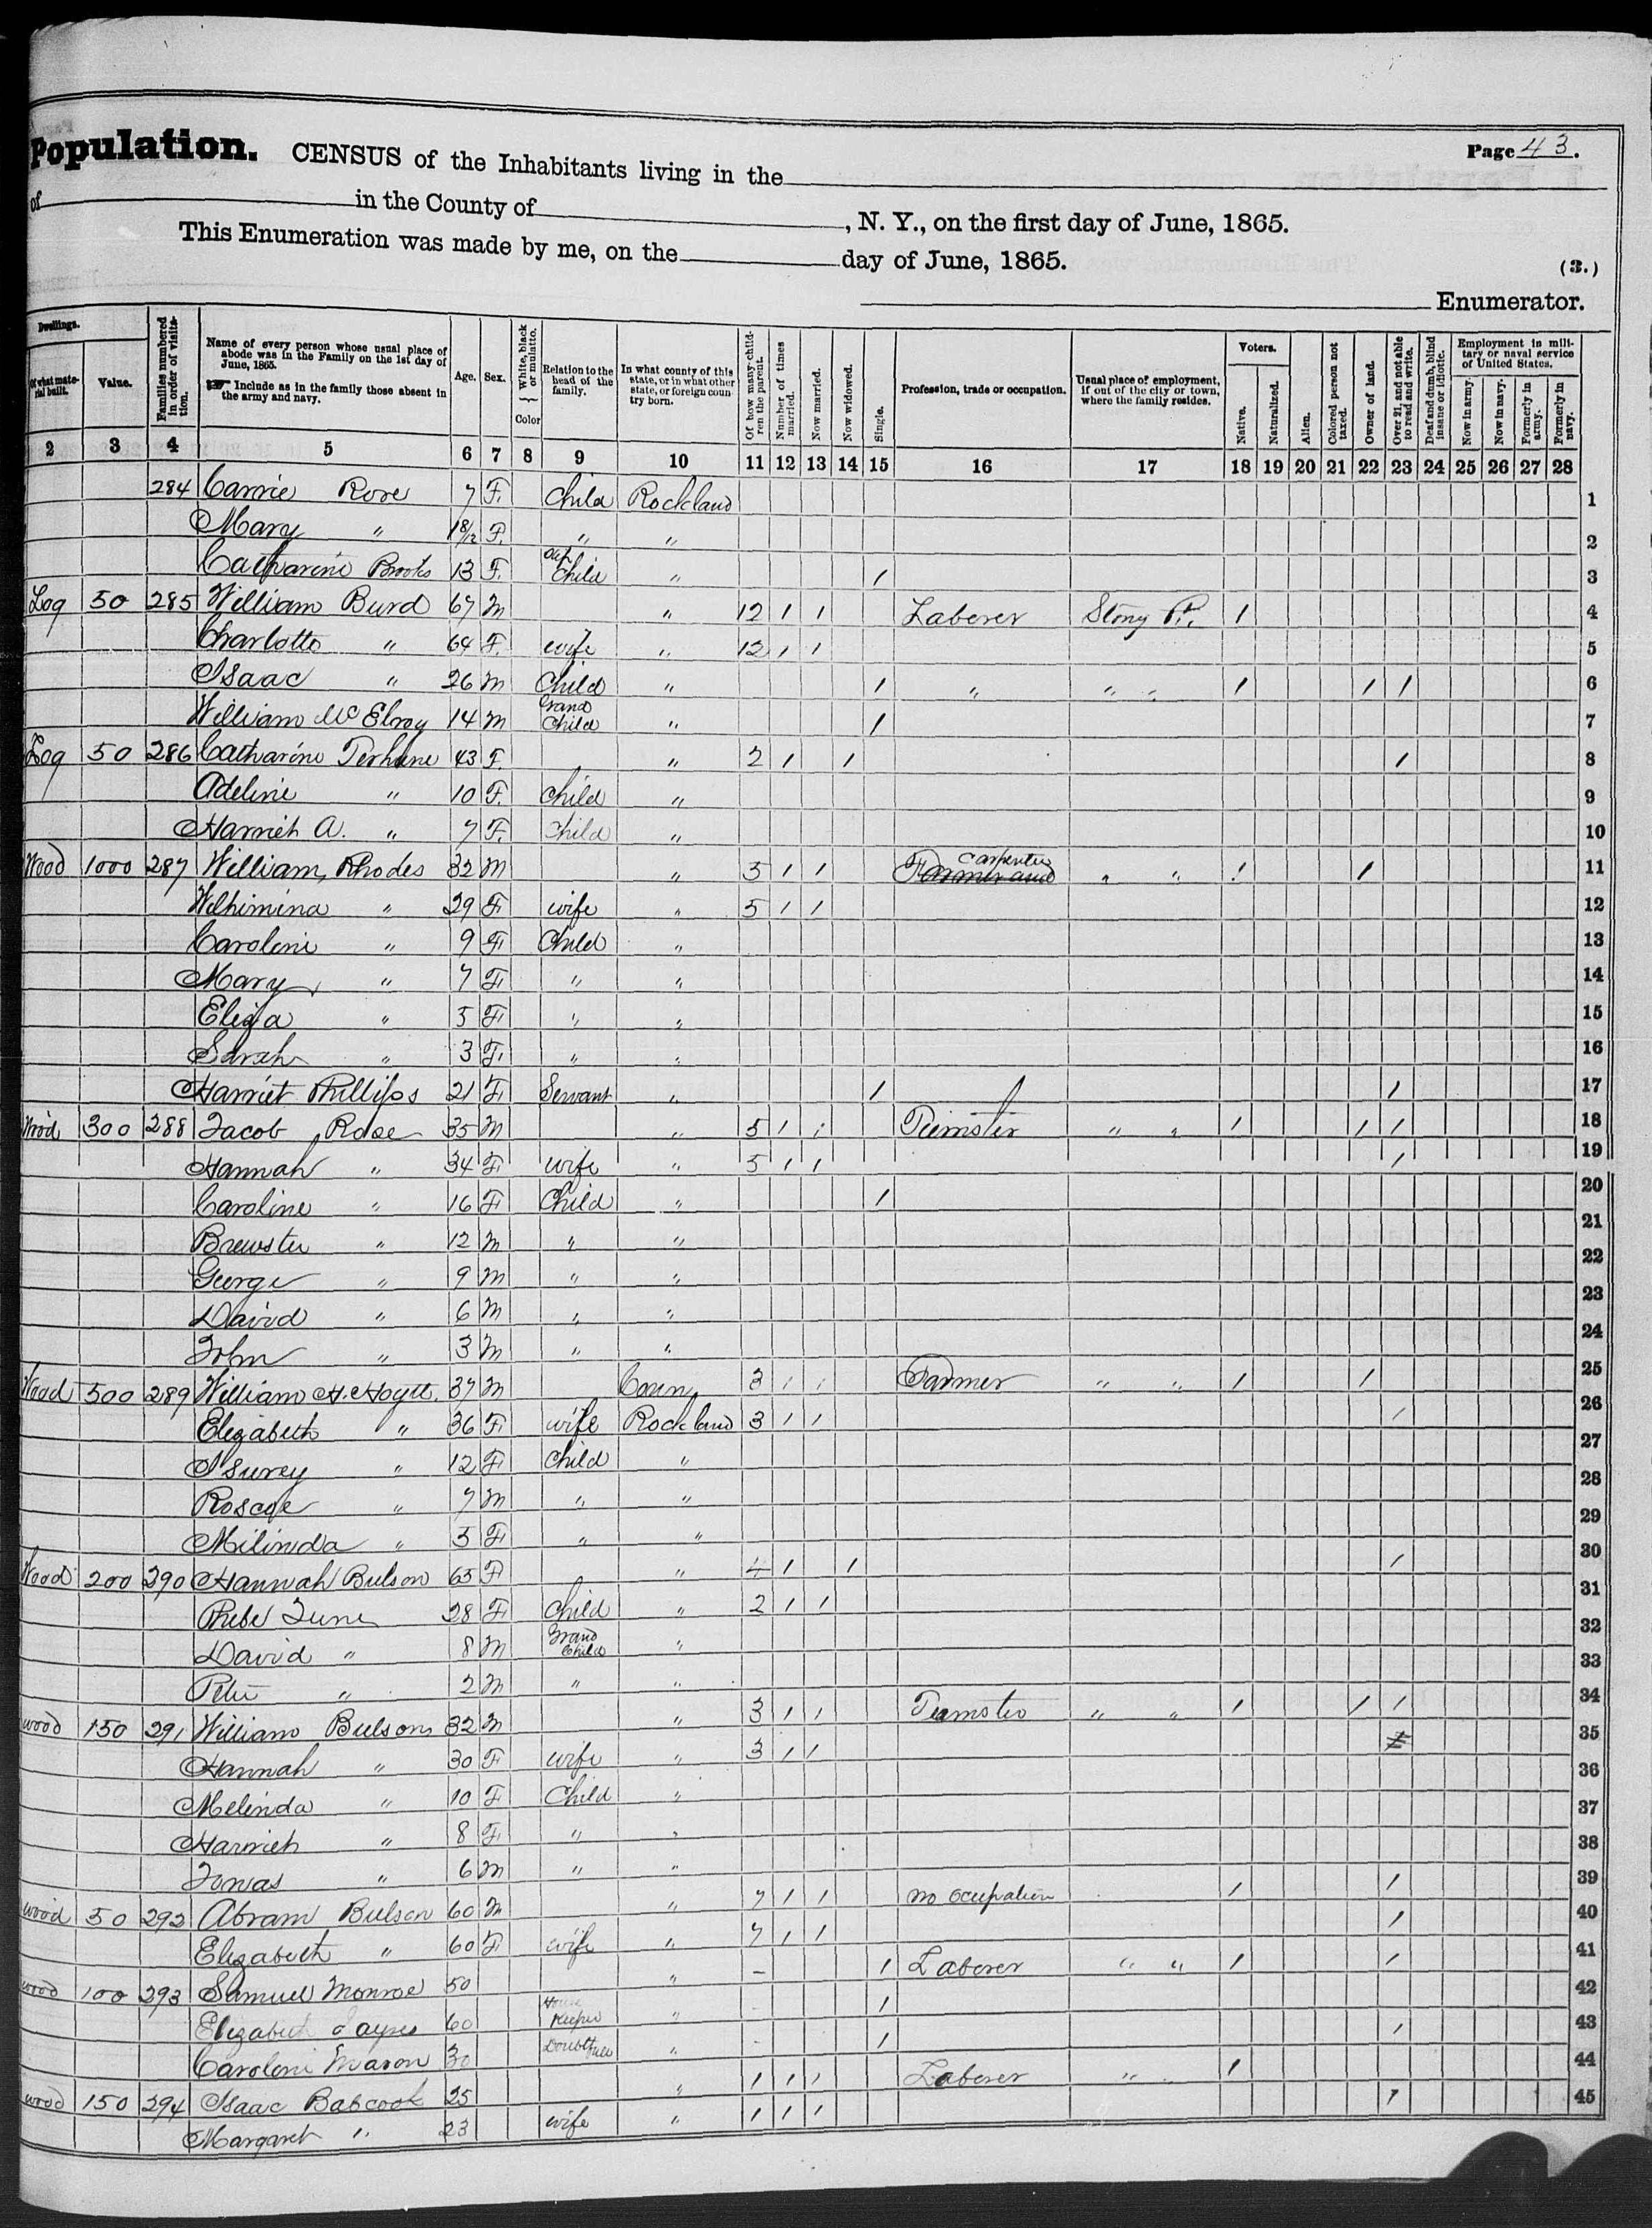 Population. CENSUS of the Inhabitants living in the
Page 43.
of in the County of , N. Y., on the first day of June, 1865.
This Enumeration was made by me, on the day of June, 1865.
(3.)
Enumerator.
Dwellings.
Of what material built.
Value.
Families numbered in order of visitation.
Name of every person whose usual place of abode was in the Family on the 1st day of June, 1865.
Include as in the family those absent in the army and navy.
Age.
Sex.
White, black or mulatto.
Color
Relation to the head of the family.
In what county of this state, or in what other state, or foreign country born.
Of how many children the parent.
Number of times married.
Now married.
Now widowed.
Single.
Profession, trade or occupation.
Usual place of employment, if out of the city or town, where the family resides.
Voters.
Native.
Naturalized.
Alien.
Colored person not taxed.
Owner of land.
Over 21, and not able to read and write.
Deaf and dumb, blind insane or idiotic.
Employment in military or naval service of United States.
Now in army.
Now in navy.
Formerly in army.
Formerly in navy.
2 3 4 5 6 7 8 9 10 11 12 13 14 15 16 17 18 19 20 21 22 23 24 25 26 27 28
284 Carrie Rose 7 F. Child Rockland 1
Mary " 1 8/12 F. " " 2
Catharine Brooks 13 F. Child " 1 3
Log 50 285 William Burd 67 M " 12 1 1 Laborer Stony Pt. 1 4
Charlotte " 64 F. wife " 12 1 1 5
Isaac " 26 M Child " 1 " " " 1 1 1 6
William McElroy 14 M Grand Child " 1 7
Log 50 286 Catharine Terhune 43 F. " 2 1 1 1 8
Adeline " 10 F. Child " 9
Harrieh A. " 7 F. Child " 10
Wood 1000 287 William Rhodes 32 M " 5 1 1 Farmer and carpenter " " 1 1 11
Wilhimina " 29 F wife " 5 1 1 12
Caroline " 9 F Child " 13
Mary " 7 F " " 14
Eliza " 5 F " " 15
Sarah " 3 F " " 16
Harriet Phillips 21 F Servant " 1 1 17
Wood 300 288 Jacob Rose 35 M " 5 1 1 Teemster " " 1 1 1 18
Hannah " 34 F wife " 5 1 1 1 19
Caroline " 16 F Child " 1 20
Brewster " 12 M " " 21
George " 9 M " " 22
David " 6 M " " 23
John " 3 M " " 24
Wood 500 289 William H. Hoytt. 37 M Conn 3 1 1 Farmer " " 1 1 25
Elizabeth " 36 F wife Rockland 3 1 1 1 26
" 12 F Child " 27
Roscoe " 7 M " " 28
Milinda " 5 F " " 29
Wood 200 290 Hannah Bulson 65 F " 4 1 1 1 30
Phebe June 28 F Child " 2 1 1 31
David " 8 M Grand Child " 32
" 2 M " " 33
wood 150 291 William Bulson 32 M " 3 1 1 Teamster " " 1 1 1 34
Hannah " 30 F wife " 3 1 1 35
Melinda " 10 F Child " 36
Harrieh " 8 F " " 37
Jonas " 6 M " " 38
wood 50 292 Abram Bulson 60 M " 7 1 1 no ocupation 1 1 39
Elizabeth " 60 F wife " 7 1 1 1 40
wood 100 293 Samuel Monroe 50 " - 1 Laborer " " 1 1 41
Elizabeth 60 House Keeper " - 1 42
Caroline Mason 30 " - 1 1 43
wood 150 294 Isaac Babcock 25 " 1 1 1 Laborer " " 1 44
Margaret " 23 wife " 1 1 1 1 45